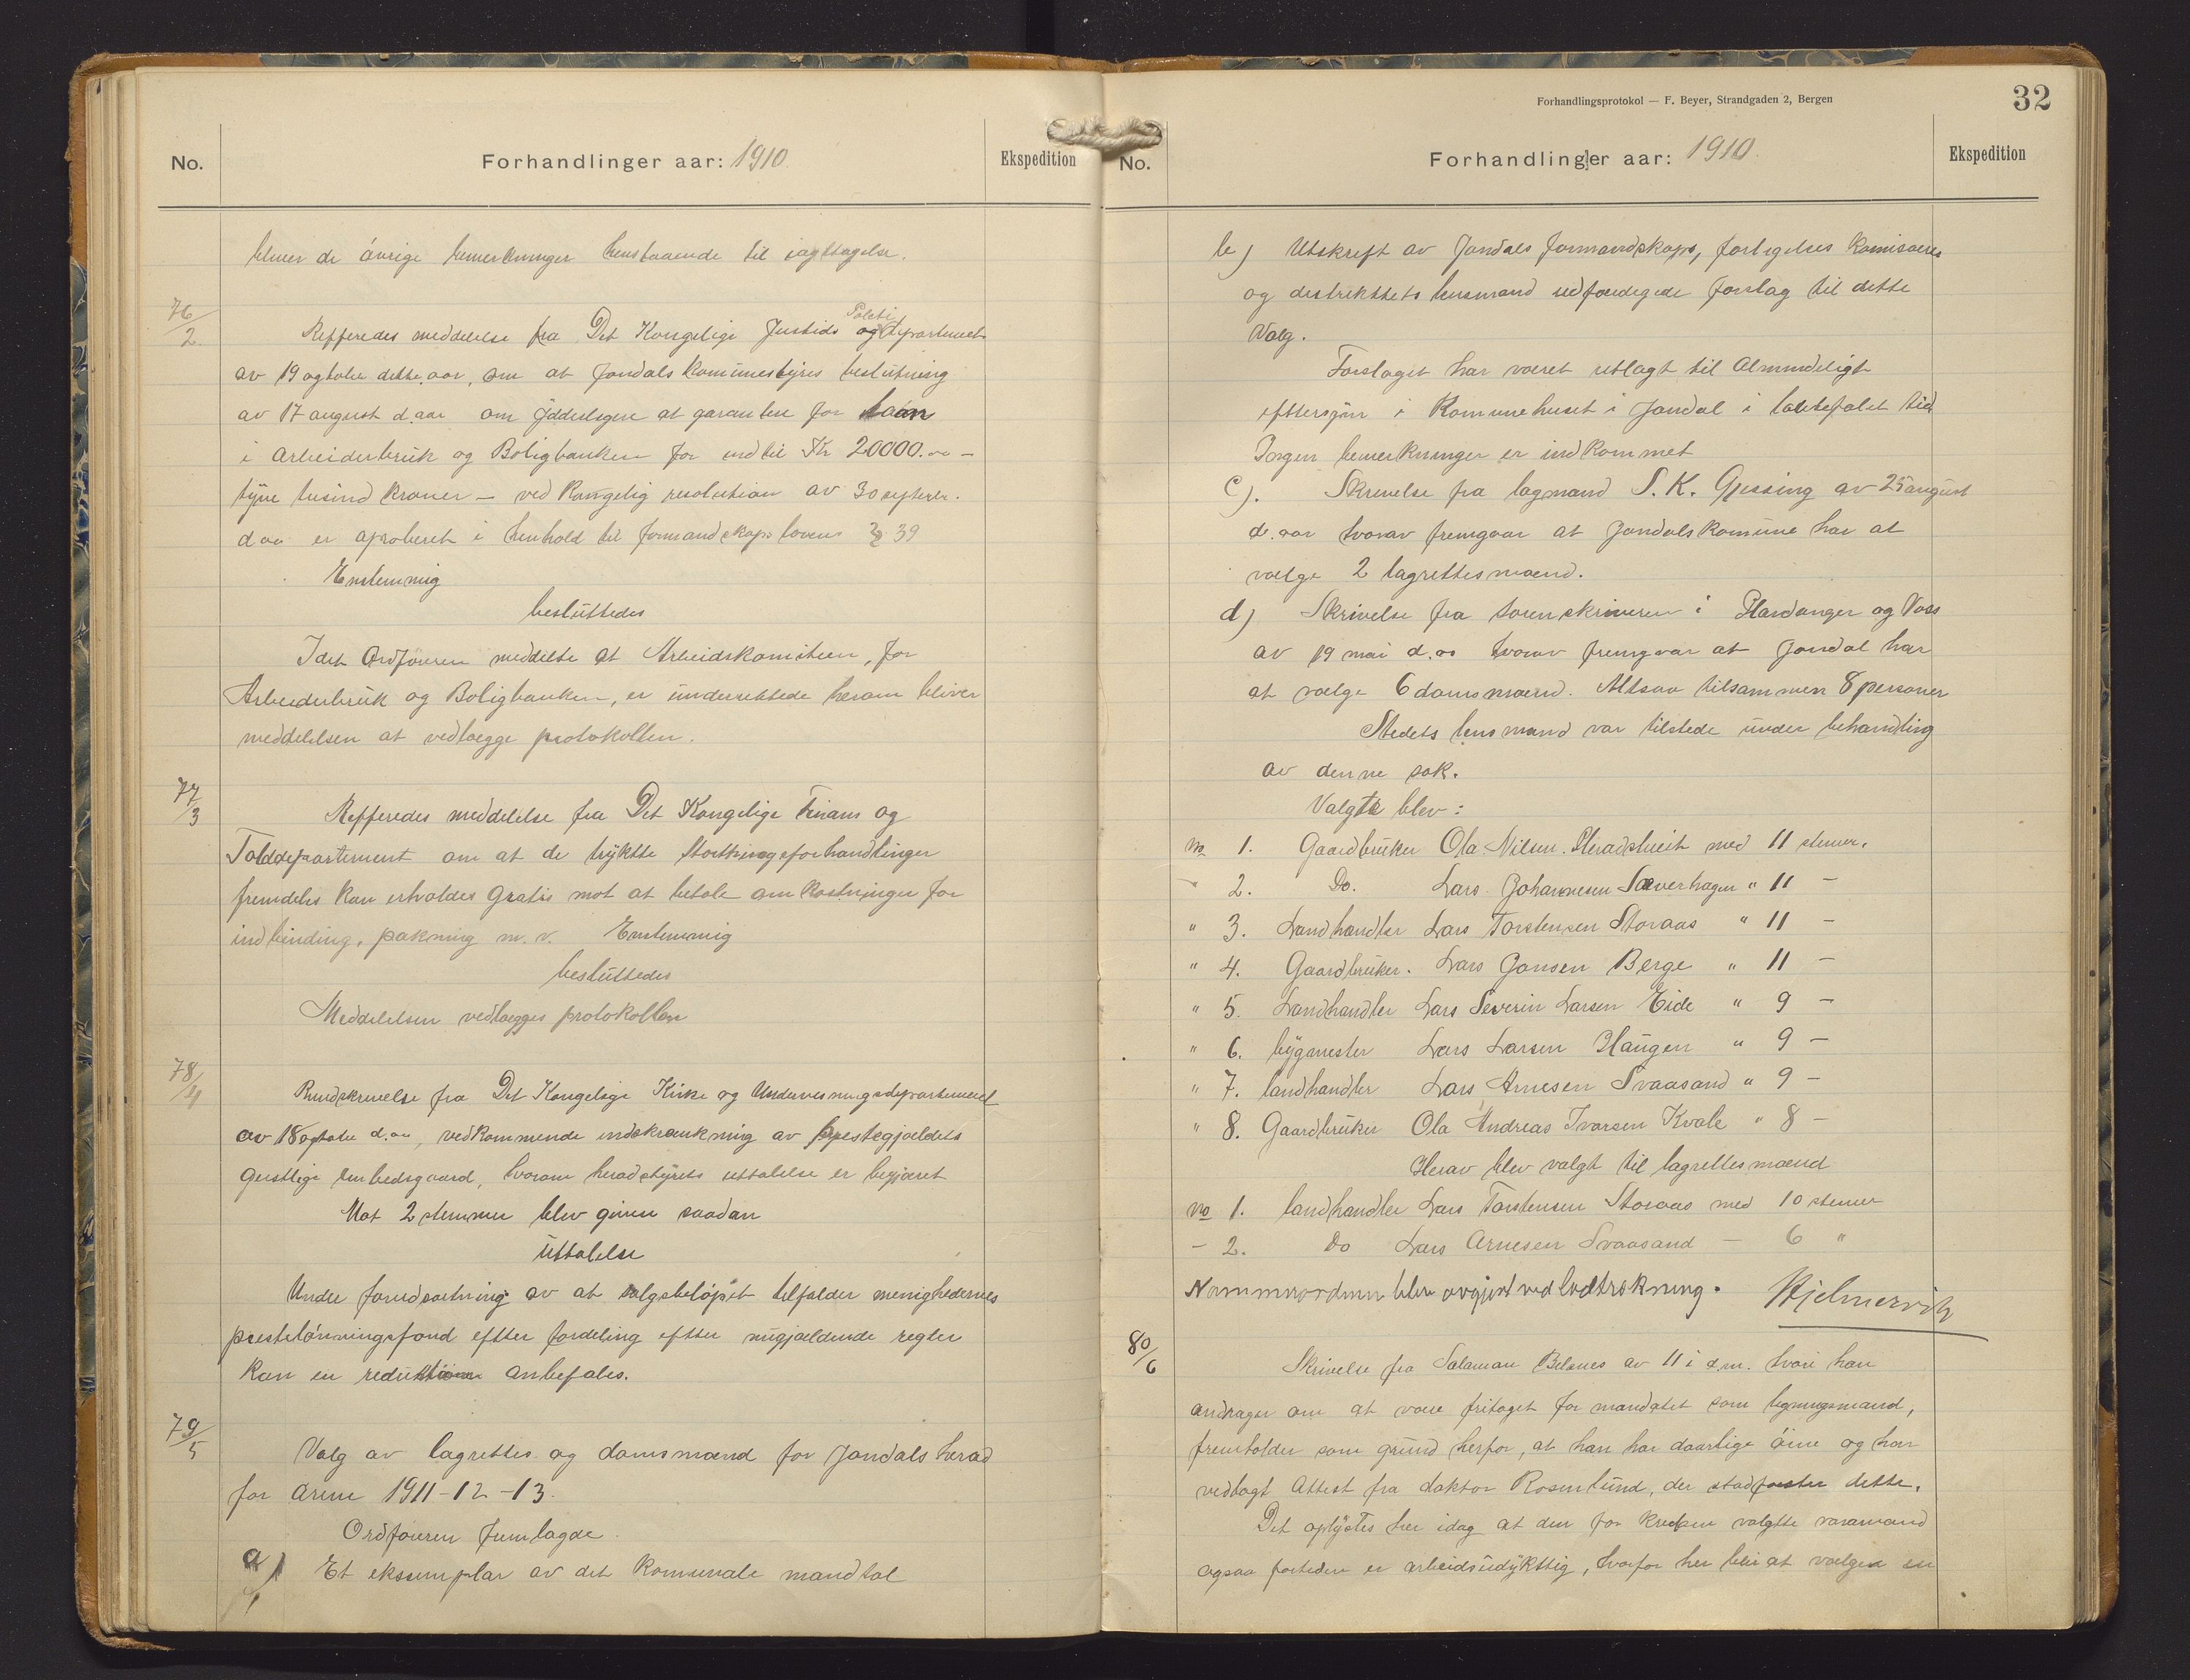 No.
Forhandlinger aar: 1910.
Ekspedition
bliver de øvrige bemerkninger henstaaende til iagttagelse.
76/2.
Refferedes meddelelse fra Det Kongelige Justids og Politi departement
av 19 ogtober dette aar, om at Jondals Komunestyres beslutning
av 17 august d. aar om yderligere at garantere for laan
i Arbeiderbruk og Boligbanken for indtil Kr 20000.00 –
tyve tusind Kroner – ved Kongelig resolution av 30 septembr.
d aa er aproberet i henhold til formandskapslovens § 39
Enstemmig
besluttedes
Idet Ordføreren meddelte at Arbeidskomiteen, for
Arbeiderbruk og Boligbanken, er underrettede herom bliver
meddelelsen at vedlægge protokollen.
77/3
Refferedes meddelelse fra Det Kongelige Finans og
Tolddepartement om at de trykte Stortingsforhandlinger
fremdeles kan erholdes gratis mot at betale omkostninger for
indbinding, pakning m. v. Enstemmig
besluttedes
Meddelelsen vedlægges protokollen
78/4
Rundskrivelse fra Det Kongelige Kirke og Undervisningsdepartement
av 18 ogtober d. aa, vedkommende indskrænkning av prestegjældets
geistlige embedsgaard, hvorom heradstyrets uttalelse er begjæret
Mot 2 stemmer blev given saadan
uttalelse
Under forudsætning av at salgsbeløpet tilfalder menighedernes
prestelønningsfond efter fordeling efter nugjældende regler
kan en reduktion anbefales.
79/5
Valg av lagrettes og domsmænd for Jondals herad
for arene 1911-12-13.
Ordføreren fremlagde.
a) Et eksemplar av det Komunale mandtal
Forhandlingsprotokol — F. Beyer, Strandgaden 2, Bergen
32
No.
Forhandlinger aar: 1910.
Ekspedition
b) Utskrift av Jondals formandskaps, forligelses Komisaires
og destriktets lensmand udfærdigede forslag til dette
Valg.
Forslaget har været utlagt til Almindeligt
eftersyn i Komunehuset i Jondal i lovbefalet tid
Ingen bemerkninger er indkommet
c). Skrivelse fra lagmand S. K. Gjessing av 25 august
d. aar hvorav fremgaar at Jondals Komune har at
vælge 2 lagrettesmænd.
d) Skrivelse fra sorenskriveren i Hardanger og Voss
av 19 mai d. aa hvorav fremgaar at Jondal har
at vælge 6 domsmænd. Altsaa tilsammen 8 personer
Stedets lensmand var tilstede under behandling
av denne sak.
Valgte blev:
no 1. Gaardbruker Ola Nilsen Heradstveit med 11 stemer.
" 2. Do. Lars Johannesen Sæverhagen " 11 –
" 3. Landhandler Lars Torstensen Storaas " 11 –
" 4. Gaardbruker. Lars Jonsen Berge " 11 –
" 5. Landhandler Lars Severin Larsen Eide " 9 –
" 6. bygmester Lars Larsen Haugen " 9 –
" 7. landhandler Lars Arnesen Svaasand " 9 –
" 8. Gaardbruker Ola Andreas Ivarsen Kvale " 8 –
Herav blev valgt til lagrettesmænd
no 1. landhandler Lars Torstensen Storaas med 10 stemer
– 2. Do Lars Arnesen Svaasand – 6 "
Nummerordenen blev avgjort ved lodtrækning. Hjelmervik
80/6
Skrivelse fra Salamon Belsnes av 11 i d.m. hvori han
andrager om at være fritaget for mandatet som ligningsmand,
fremholder som grund herfor, at han har daarlige øine og har
vedlagt Attest fra doktor Rosenlund, der stadfæster dette.
Det oplystes her idag at den for Kredsen valgte varamand
ogsaa fortiden er arbeidsudyktig, hvorfor her blir at vælges en